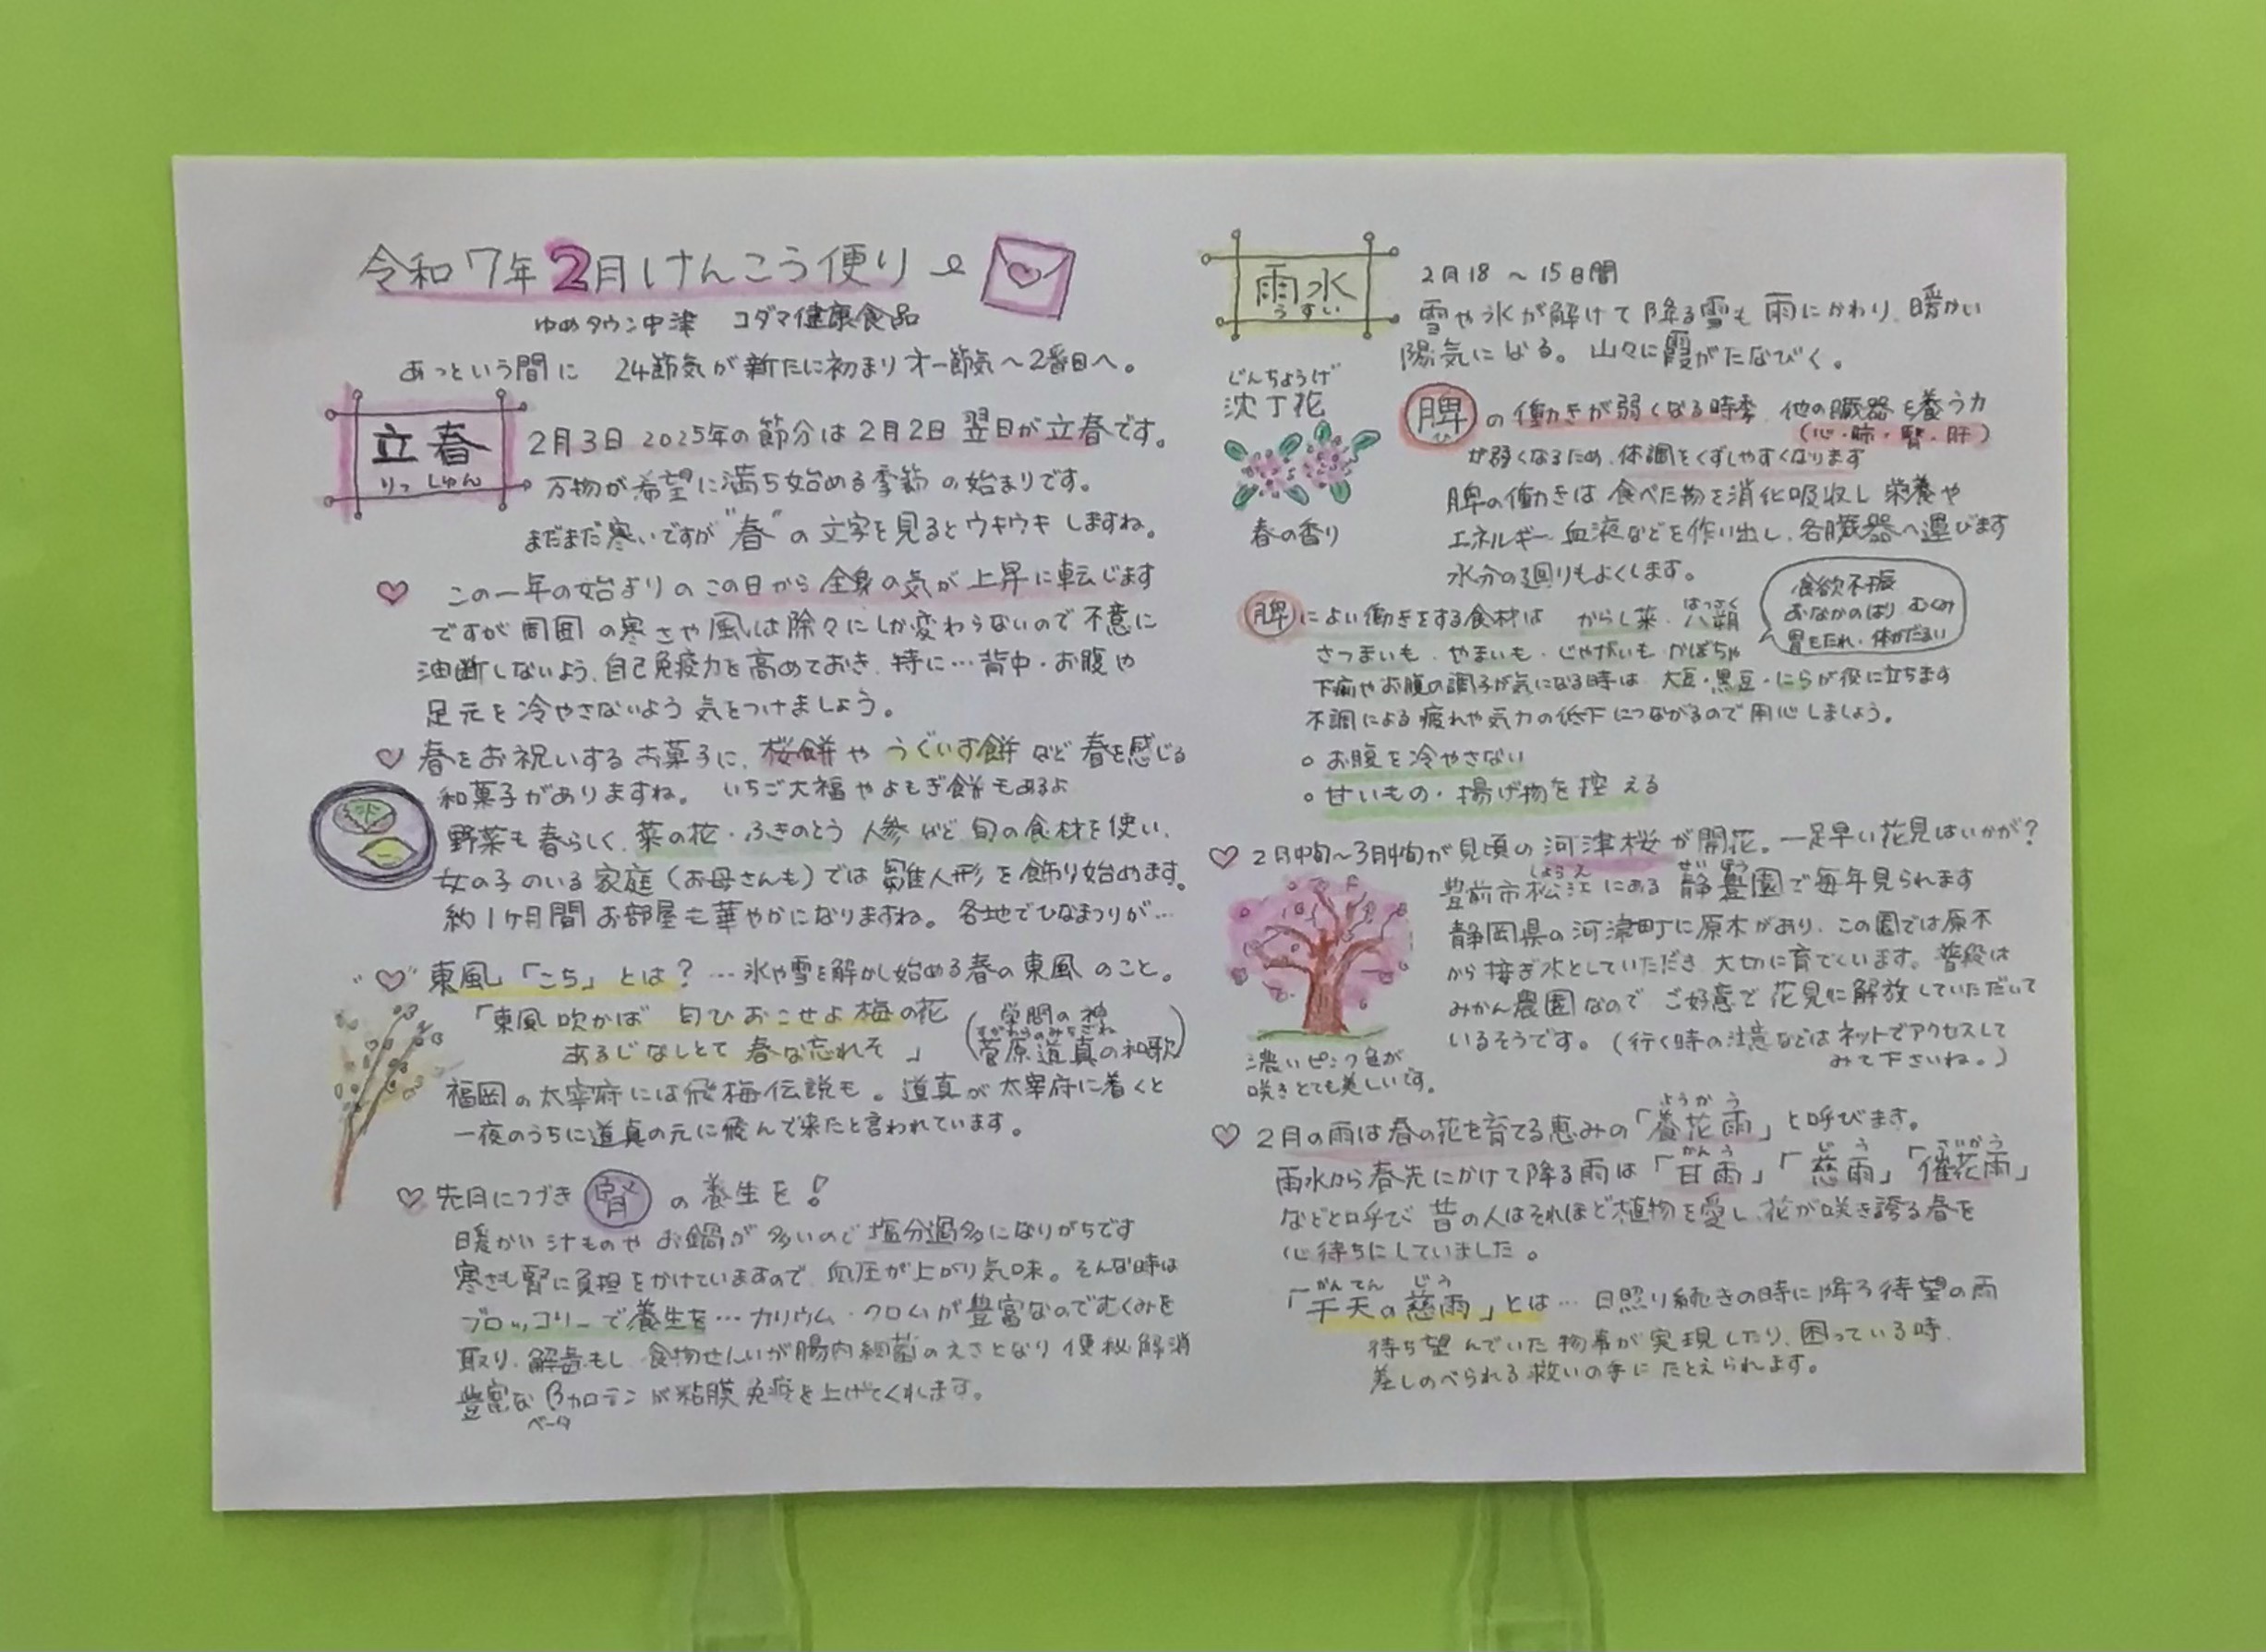 令和7年2月けんこう便り
ゆめタウン中津 コダマ健康食品
あっという間に 24節気が新たに初まりオ一節気〜2番目へ。
立春
りっしゅん
2月3日 2025年の節分は2月2日 翌日が立春です。
万物が希望に満ち始める季節の始まりです。
まだまだ寒いですが"春"の文字を見るとウキウキしますね。
♡ この一年の始まりのこの日から全身の気が上昇に転じます
ですが周囲の寒さや風は除々にしか変わらないので不意に
油断しないよう、自己免疫力を高めておき、特に…背中・お腹や
足元を冷やさないよう気をつけましょう。
♡ 春をお祝いするお菓子に、桜餅やうぐいす餅など春を感じる
和菓子がありますね。 いちご大福やよもぎ餅もあるよ
野菜も春らしく、菜の花・ふきのとう 人参など旬の食材を使い、
女の子のいる家庭(お母さんも)では雛人形を飾り始めます。
約1ヶ月間お部屋も華やかになりますね。各地でひなまつりが…
♡ 東風「こち」とは?…氷や雪を解かし始める春の東風のこと。
「東風吹かば 匂ひおこせよ梅の花
あるじなしとて 春な忘れそ」
(学問の神
すがわらのみちざね
菅原道真の和歌)
福岡の太宰府には飛梅伝説も。道真が太宰府に着くと
一夜のうちに道真の元に飛んで来たと言われています。
♡ 先月につづき 腎 の養生を!
暖かい汁ものやお鍋が多いので塩分過多になりがちです
寒さも腎に負担をかけていますので、血圧が上がり気味。そんな時は
ブロッコリーで養生を…カリウム・クロムが豊富なのでむくみを
取り、解毒もし、食物せんいが腸内細菌のえさとなり便秘解消
豊富なβカロテンが粘膜免疫を上げてくれます。
ベータ
雨水
うすい
2月18 〜 15日間
雪や氷が解けて降る雪も雨にかわり、暖かい
陽気になる。山々に霞がたなびく。
じんちょうげ
沈丁花
春の香り
脾 の働きが弱くなる時季、他の臓器を養う力
ひ
(心・肺・腎・肝)
が弱くなるため、体調をくずしやすくなります
脾の働きは食べた物を消化吸収し栄養や
エネルギー、血液などを作り出し、各臓器へ運びます
水分の廻りもよくします。
食欲不振
おなかのはり むくみ
胃もたれ・体がだるい
はっさく
脾 によい働きをする食材は からし菜・八朔
さつまいも・やまいも・じゃがいも かぼちゃ
下痢やお腹の調子が気になる時は 大豆・黒豆・にらが役に立ちます
不調による疲れや気力の低下につながるので用心しましょう。
○ お腹を冷やさない
○ 甘いもの・揚げ物を控える
♡ 2月中旬〜3月中旬が見頃の河津桜が開花。一足早い花見はいかが?
しょうえ ぜいほう
豊前市松江にある静豊園で毎年見られます
静岡県の河津町に原木があり、この園では原木
から接ぎ木としていただき 大切に育ています。普段は
みかん農園なので ご好意で花見に解放していただいて
いるそうです。(行く時の注意などはネットでアクセスして
みて下さいね。)
濃いピンク色が
咲きとても美しいです。
ようかう
♡ 2月の雨は春の花を育てる恵みの「養花雨」と呼びます。
かんう じう さいかう
雨水から春先にかけて降る雨は「甘雨」「慈雨」「催花雨」
などと呼び 昔の人はそれほど植物を愛し、花が咲き誇る春を
心待ちにしていました。
かんてん じう
「干天の慈雨」とは…日照り続きの時に降る待望の雨
待ち望んでいた物事が実現したり、困っている時、
差しのべられる救いの手にたとえられます。